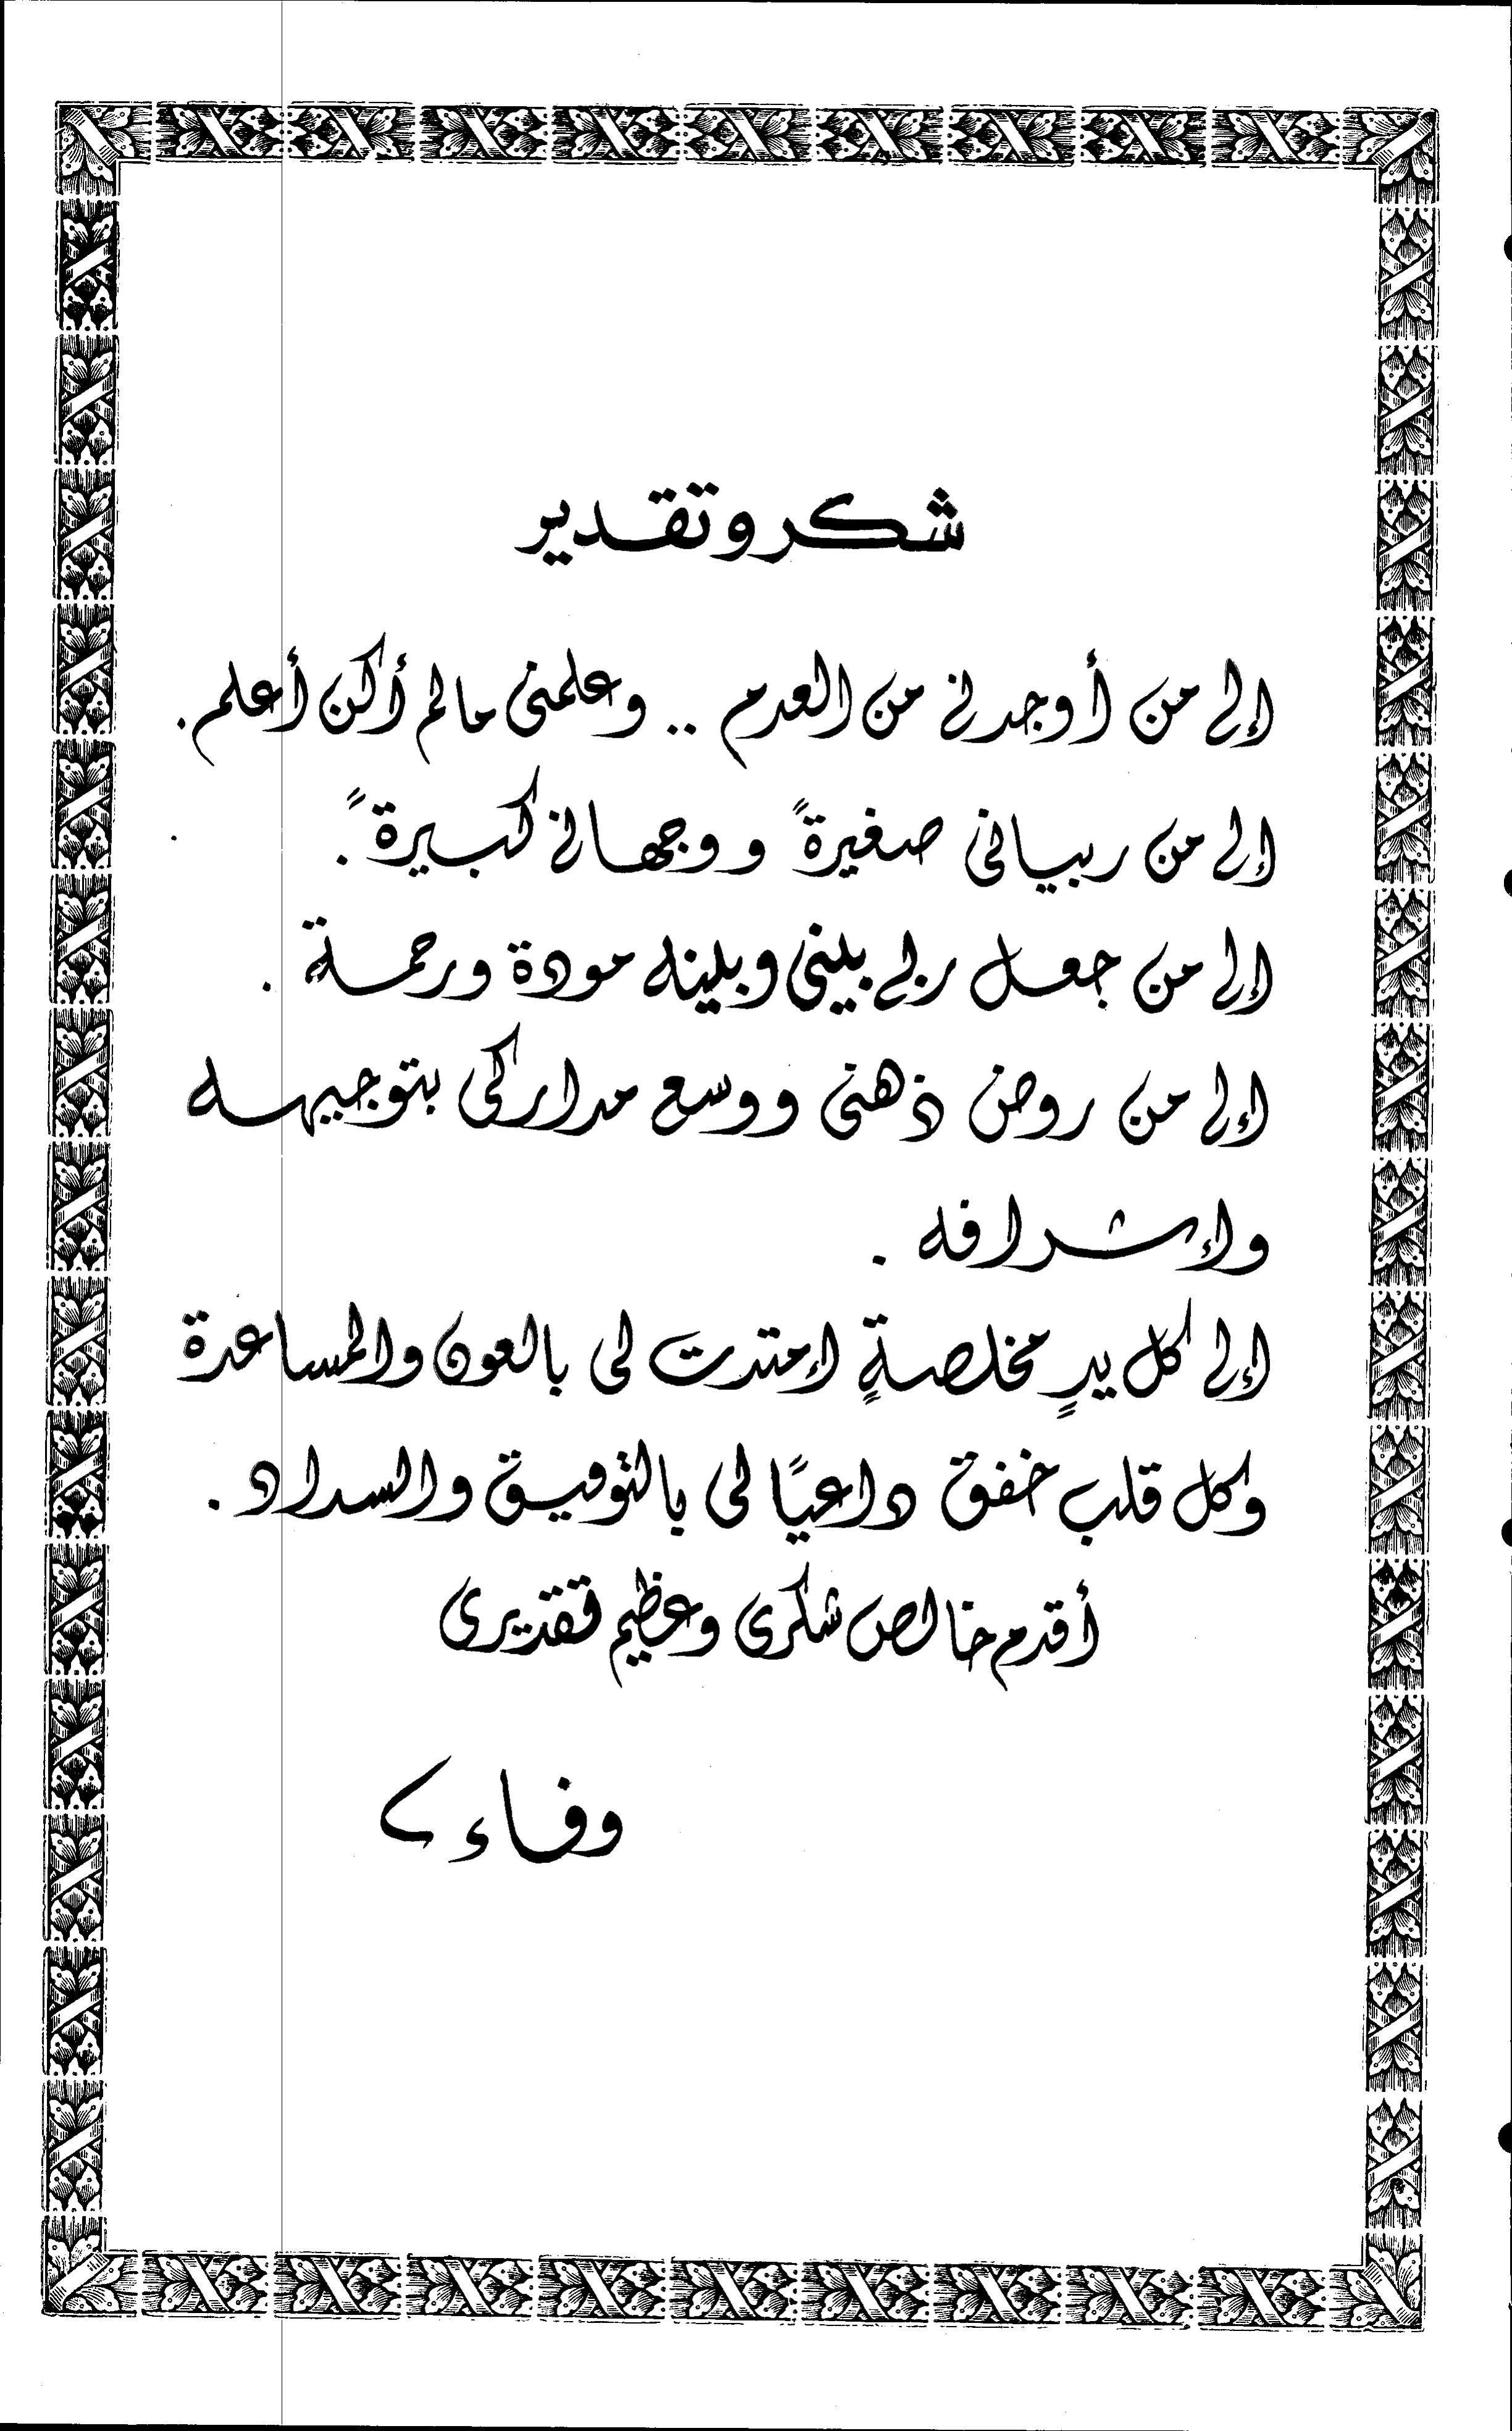 شكر وتقدير
إلى من أوجدنى من العدم .. وعلمنى مالم أكن أعلم.
إلى من ربيانى صغيرةً ووجهانى كبيرةً.
إلى من جعل ربى بينى وبينه مودة ورحمة .
إلى من روض ذهنى ووسع مداركى بتوجيهه
وإشرافه .
إلى كل يدٍ مخلصةٍ إمتدت لى بالعون والمساعدة
وكل قلب خفق داعيًا لى بالتوفيق والسداد .
أقدم خالص شكرى وعظيم تقديرى
وفاء